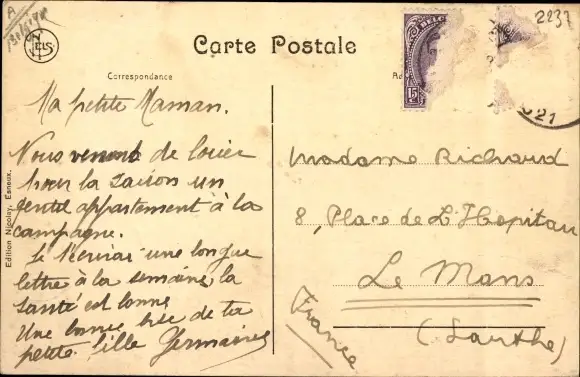 A
2237
NELS
Carte Postale
Correspondance
BELG
15
21
Ma petite Maman.
Nous venons de louer
pour la saison un
gentil appartement à la
campagne.
Je t'écrirai une longue
lettre à la semaine, la
santé est bonne
Une bonne bise de ta
petite fille Germaine
Madame Richard
8, Place de L'Hopitau
Le Mans
(Sarthe)
France
Edition Nicolay, Esneux.